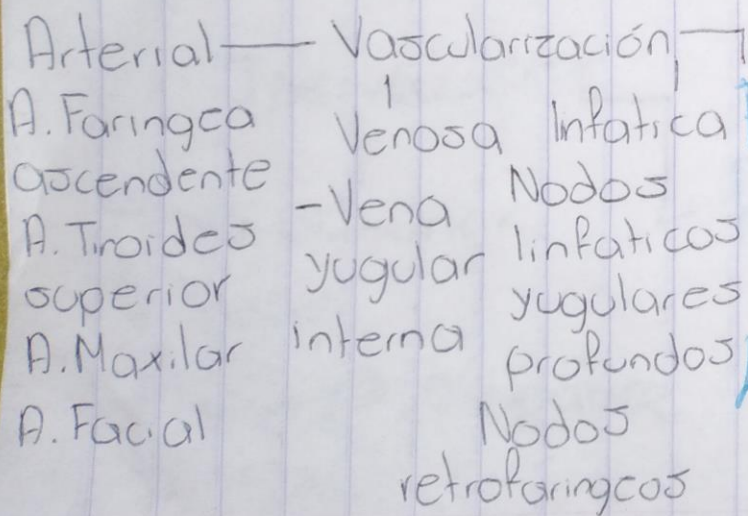 Arterial — Vascularización
A. Faringea
ascendente
A. Tiroides
superior
A. Maxilar
A. Facial
Venosa
-Vena
yugular
interna
linfatica
Nodos
linfaticos
yugulares
profundos
Nodos
retrofaringeos